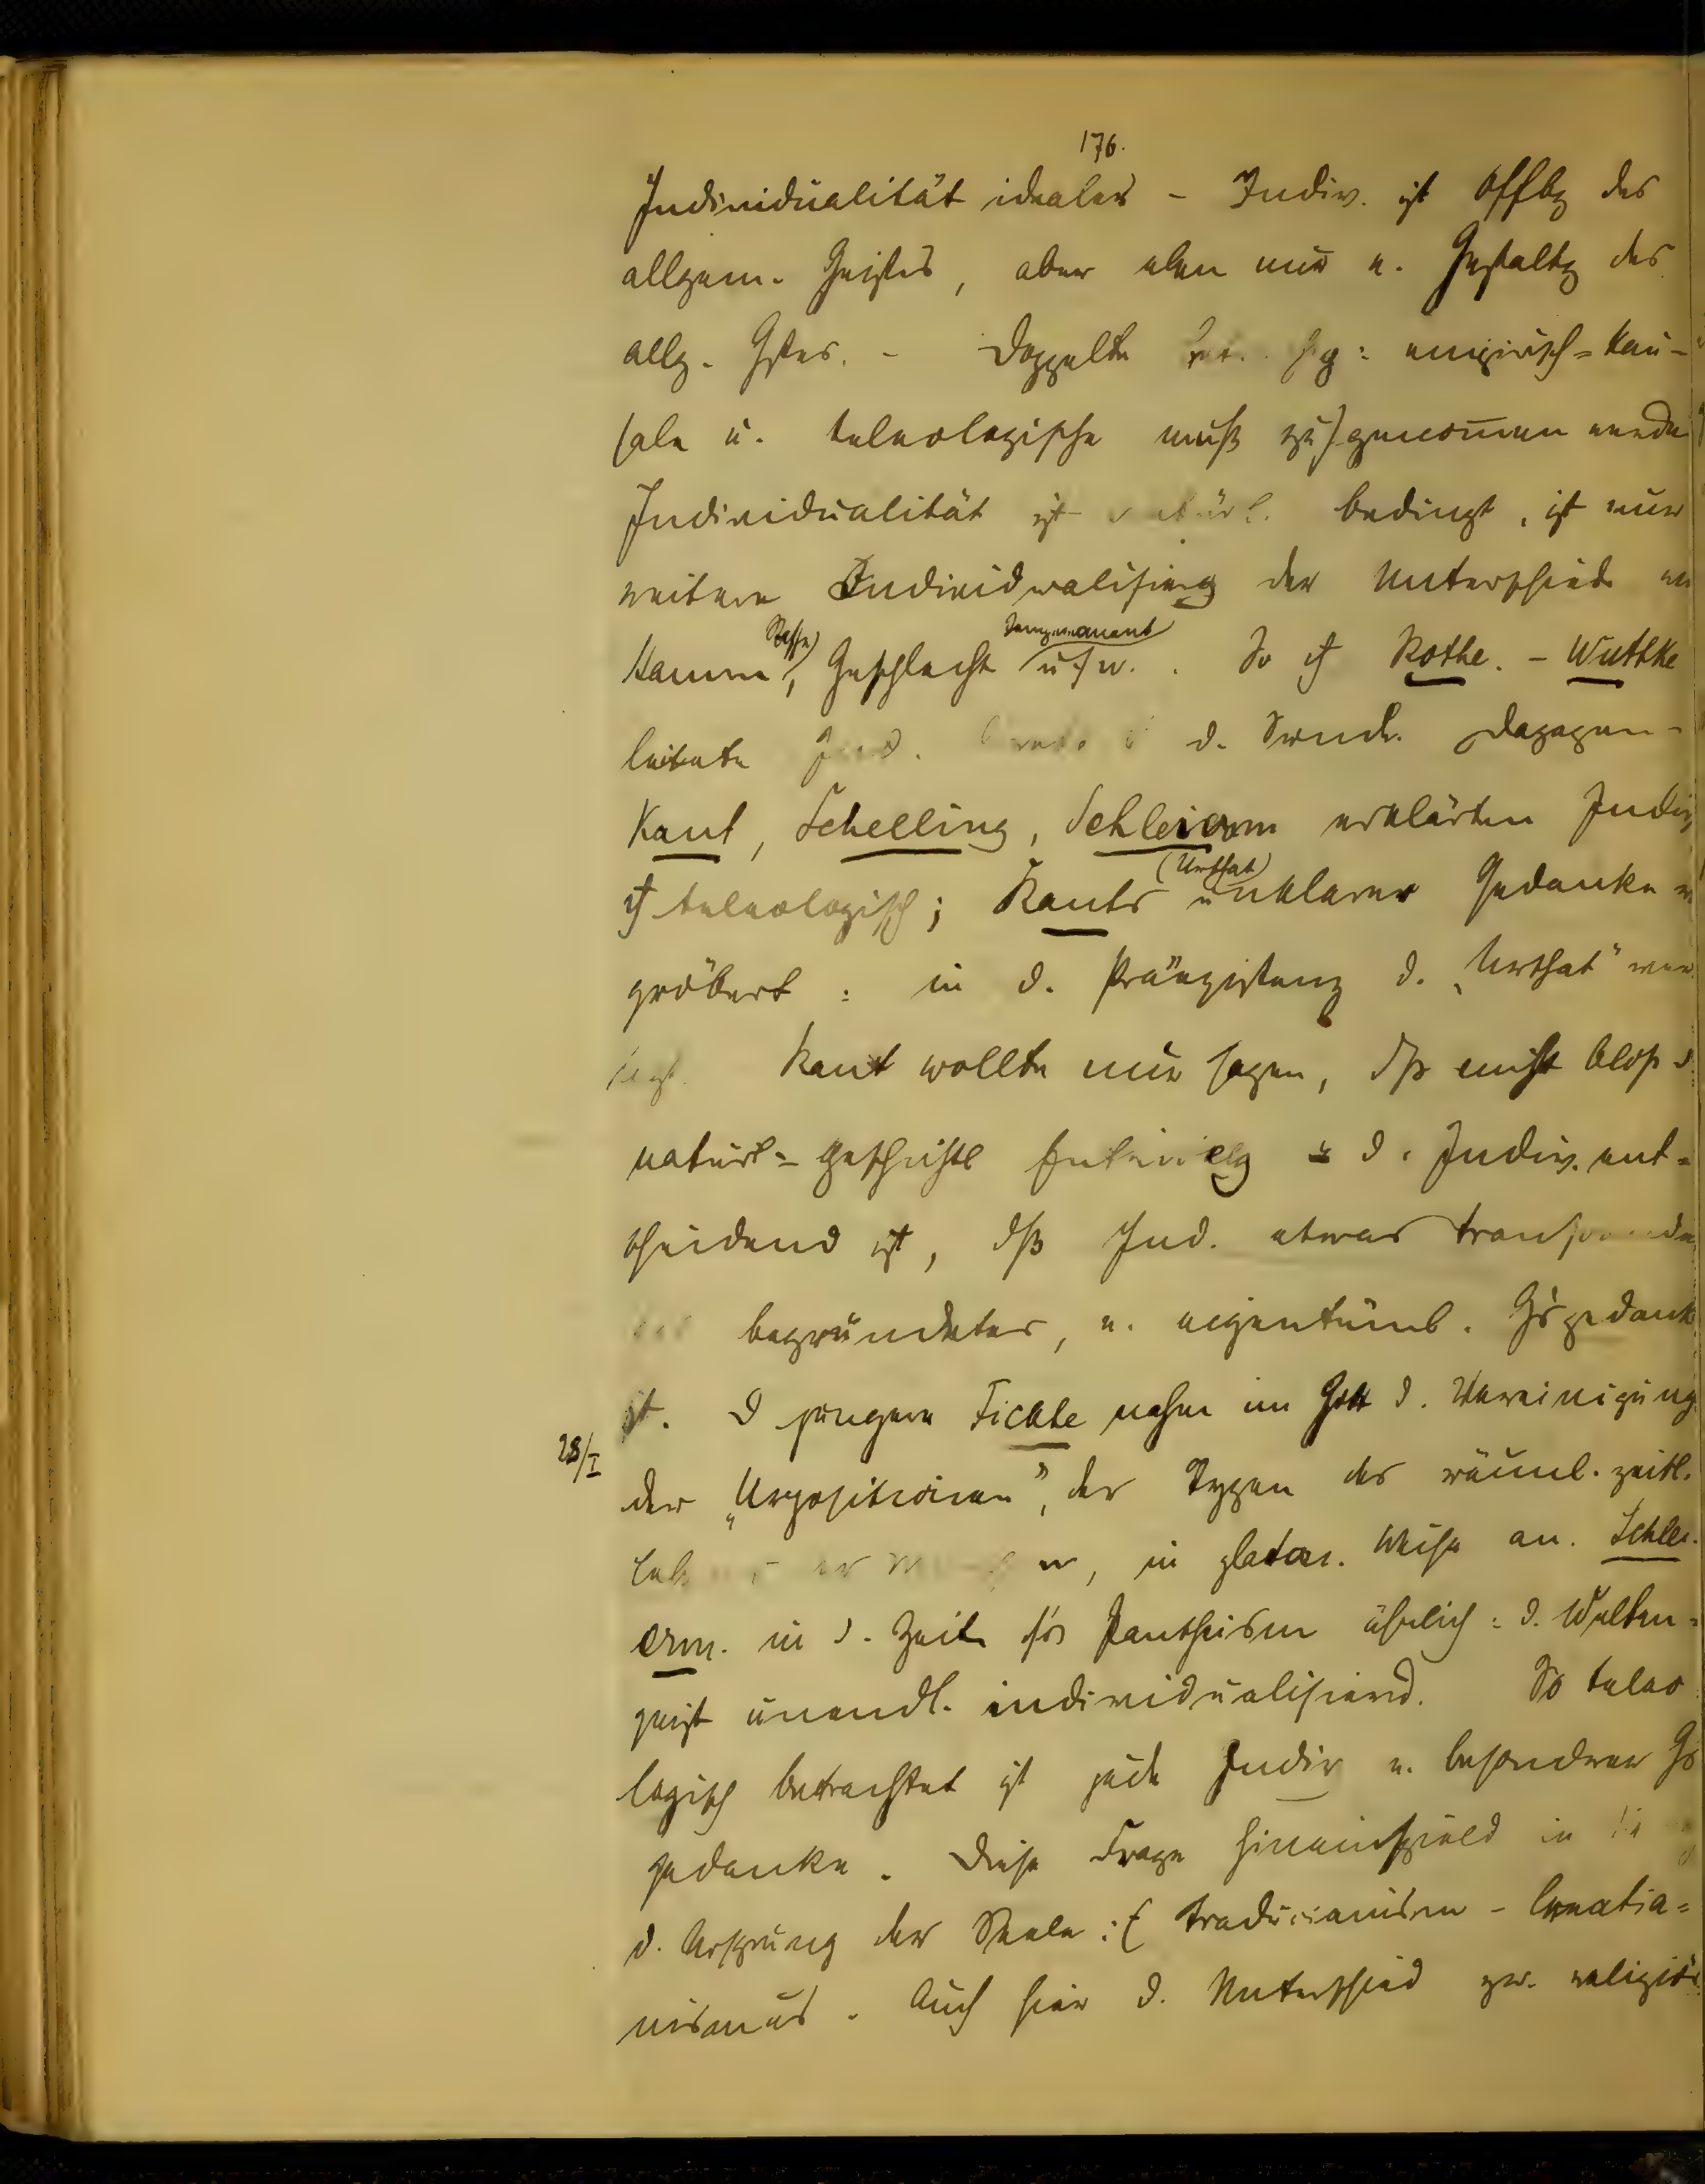 176.
Individualität idealer – Indiv. ist Offbg des
allgem. Geistes, aber eben nur e. Gestaltg des
allg. Gstes. – Doppelte : empirisch=kau-
sale u. teleologische muß zus genom̄en werde
Individualität ist natürl. bedingt, ist nur
weitere Individualisierg der Unterschiede
Stamm (Rasse), Geschlecht Temperament usw. . So Rothe. – Wuttke
leitete Ind. d. Sünde. Dagegen –
Kant, Schelling, Schleierm erklärten Indiv
teleologisch; Kants (Urthat) unklarer Gedanke
gröbert : in d. Präexistenz d. „Urthat"
Kant wollte nur sagen, dß nicht bloß d.
natürl.= geschichtl Entwicklg d. Indiv. ent=
scheidend ist, dß Ind. etwas
begründetes, e. eigentüml. Gs gedank
ist. D jüngere Fichte nahm in Gott d. Vereinigung
28/I
der „Urpositionen", der Typen des räuml. zeitl.
in platon. Weise an. Schlei.
erm. in d. Zeit s's Pantheism ähnlich : d. Welten=
geist unendl. individualisierend. So teleo
logisch betrachtet ist jede Indiv e. besonderer Gs
gedanke. Diese Frage hineinspield in
d. Ursprung der Seele : Traducianism – Creatia=
nismus. Auch hier d. Unterschied zw. religiös